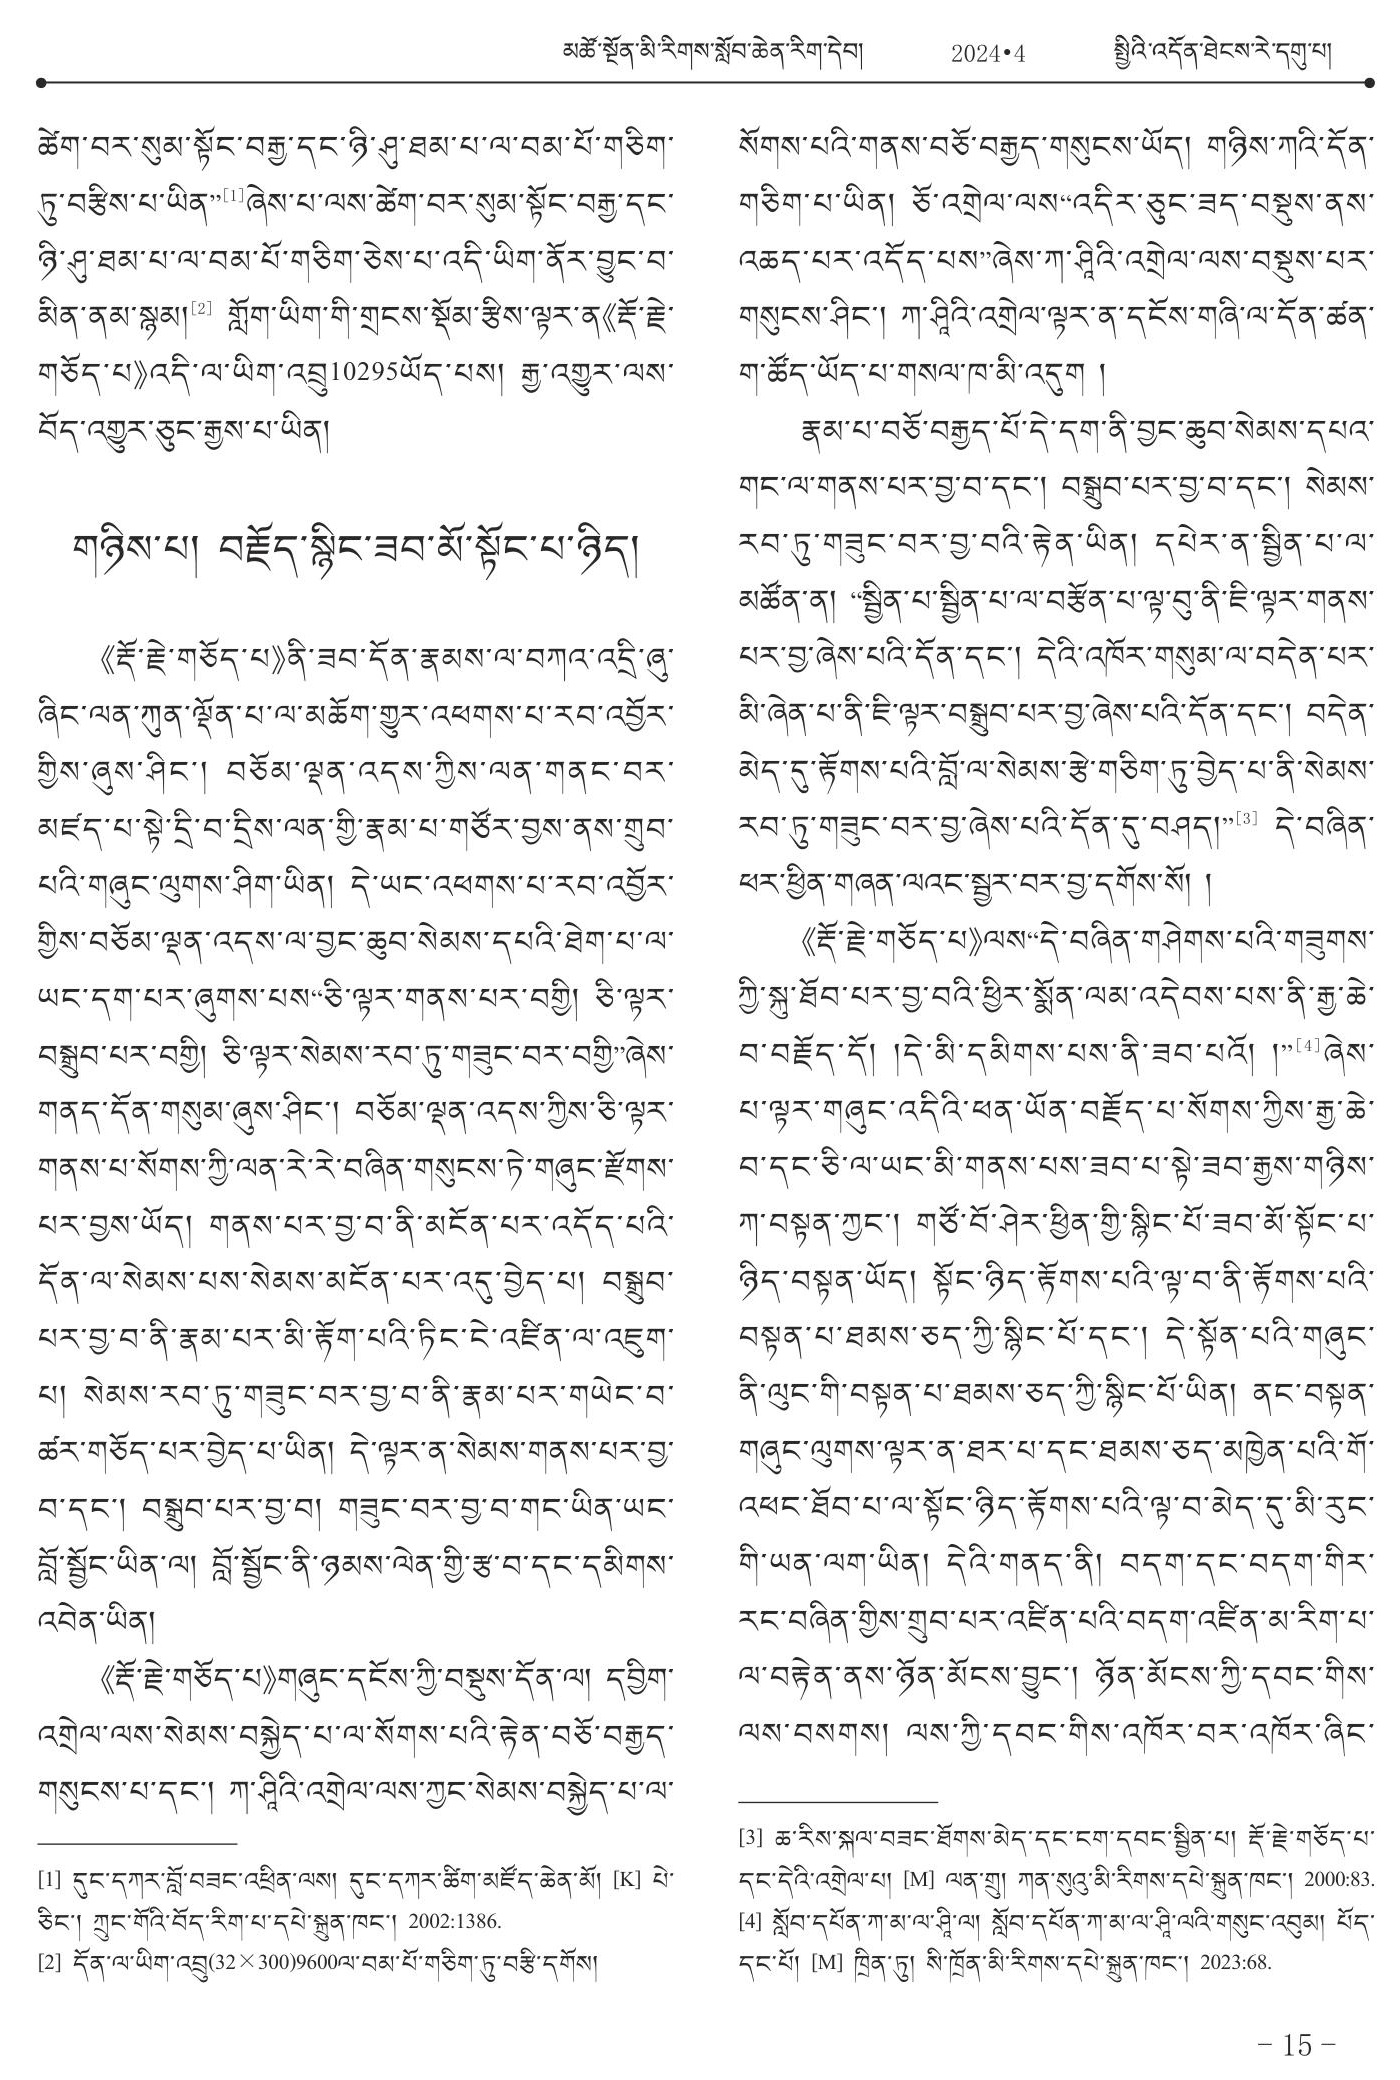 མཚོ་སྔོན་མི་རིགས་སློབ་ཆེན་རིག་དེབ། 2024•4 སྤྱིའི་འདོན་ཐེངས་རེ་དགུ་པ།
ཚེག་བར་སུམ་སྟོང་བརྒྱ་དང་ཉི་ཤུ་ཐམ་པ་ལ་བམ་པོ་གཅིག་
ཏུ་བརྩིས་པ་ཡིན”[1]ཞེས་པ་ལས་ཚེག་བར་སུམ་སྟོང་བརྒྱ་དང་
ཉི་ཤུ་ཐམ་པ་ལ་བམ་པོ་གཅིག་ཅེས་པ་འདི་ཡིག་ནོར་བྱུང་བ་
མིན་ནམ་སྙམ།[2] གློག་ཡིག་གི་གྲངས་སྡོམ་རྩིས་ལྟར་ན《རྡོ་རྗེ་
གཅོད་པ》འདི་ལ་ཡིག་འབྲུ10295ཡོད་པས། རྒྱ་འགྱུར་ལས་
བོད་འགྱུར་ཅུང་རྒྱས་པ་ཡིན།
གཉིས་པ། བརྗོད་སྙིང་ཟབ་མོ་སྟོང་པ་ཉིད།
《རྡོ་རྗེ་གཅོད་པ》ནི་ཟབ་དོན་རྣམས་ལ་བཀའ་འདྲི་ཞུ་
ཞིང་ལན་ཀུན་ལྡོན་པ་ལ་མཆོག་གྱུར་འཕགས་པ་རབ་འབྱོར་
གྱིས་ཞུས་ཤིང་། བཅོམ་ལྡན་འདས་ཀྱིས་ལན་གནང་བར་
མཛད་པ་སྟེ་དྲི་བ་དྲིས་ལན་གྱི་རྣམ་པ་གཙོར་བྱས་ནས་གྲུབ་
པའི་གཞུང་ལུགས་ཤིག་ཡིན། དེ་ཡང་འཕགས་པ་རབ་འབྱོར་
གྱིས་བཅོམ་ལྡན་འདས་ལ་བྱང་ཆུབ་སེམས་དཔའི་ཐེག་པ་ལ་
ཡང་དག་པར་ཞུགས་པས“ཅི་ལྟར་གནས་པར་བགྱི། ཅི་ལྟར་
བསྒྲུབ་པར་བགྱི། ཅི་ལྟར་སེམས་རབ་ཏུ་གཟུང་བར་བགྱི”ཞེས་
གནད་དོན་གསུམ་ཞུས་ཤིང་། བཅོམ་ལྡན་འདས་ཀྱིས་ཅི་ལྟར་
གནས་པ་སོགས་ཀྱི་ལན་རེ་རེ་བཞིན་གསུངས་ཏེ་གཞུང་རྫོགས་
པར་བྱས་ཡོད། གནས་པར་བྱ་བ་ནི་མངོན་པར་འདོད་པའི་
དོན་ལ་སེམས་པས་སེམས་མངོན་པར་འདུ་བྱེད་པ། བསྒྲུབ་
པར་བྱ་བ་ནི་རྣམ་པར་མི་རྟོག་པའི་ཏིང་ངེ་འཛིན་ལ་འཇུག་
པ། སེམས་རབ་ཏུ་གཟུང་བར་བྱ་བ་ནི་རྣམ་པར་གཡེང་བ་
ཚར་གཅོད་པར་བྱེད་པ་ཡིན། དེ་ལྟར་ན་སེམས་གནས་པར་བྱ་
བ་དང་། བསྒྲུབ་པར་བྱ་བ། གཟུང་བར་བྱ་བ་གང་ཡིན་ཡང་
བློ་སྦྱོང་ཡིན་ལ། བློ་སྦྱོང་ནི་ཉམས་ལེན་གྱི་རྩ་བ་དང་དམིགས་
འབེན་ཡིན།
《རྡོ་རྗེ་གཅོད་པ》གཞུང་དངོས་ཀྱི་བསྡུས་དོན་ལ། དབྱིག་
འགྲེལ་ལས་སེམས་བསྐྱེད་པ་ལ་སོགས་པའི་རྟེན་བཅོ་བརྒྱད་
གསུངས་པ་དང་། ཀ་ཤཱིའི་འགྲེལ་ལས་ཀྱང་སེམས་བསྐྱེད་པ་ལ་
[1] དུང་དཀར་བློ་བཟང་འཕྲིན་ལས། དུང་དཀར་ཚིག་མཛོད་ཆེན་མོ། [K] པེ་
ཅིང་། ཀྲུང་གོའི་བོད་རིག་པ་དཔེ་སྐྲུན་ཁང་། 2002:1386.
[2] དོན་ལ་ཡིག་འབྲུ(32×300)9600ལ་བམ་པོ་གཅིག་ཏུ་བརྩི་དགོས།
སོགས་པའི་གནས་བཅོ་བརྒྱད་གསུངས་ཡོད། གཉིས་ཀའི་དོན་
གཅིག་པ་ཡིན། ཅོ་འགྲེལ་ལས“འདིར་ཅུང་ཟད་བསྡུས་ནས་
འཆད་པར་འདོད་པས”ཞེས་ཀ་ཤཱིའི་འགྲེལ་ལས་བསྡུས་པར་
གསུངས་ཤིང་། ཀ་ཤཱིའི་འགྲེལ་ལྟར་ན་དངོས་གཞི་ལ་དོན་ཚན་
ག་ཚོད་ཡོད་པ་གསལ་ཁ་མི་འདུག །
རྣམ་པ་བཅོ་བརྒྱད་པོ་དེ་དག་ནི་བྱང་ཆུབ་སེམས་དཔའ་
གང་ལ་གནས་པར་བྱ་བ་དང་། བསྒྲུབ་པར་བྱ་བ་དང་། སེམས་
རབ་ཏུ་གཟུང་བར་བྱ་བའི་རྟེན་ཡིན། དཔེར་ན་སྦྱིན་པ་ལ་
མཚོན་ན། “སྦྱིན་པ་སྦྱིན་པ་ལ་བརྩོན་པ་ལྟ་བུ་ནི་ཇི་ལྟར་གནས་
པར་བྱ་ཞེས་པའི་དོན་དང་། དེའི་འཁོར་གསུམ་ལ་བདེན་པར་
མི་ཞེན་པ་ནི་ཇི་ལྟར་བསྒྲུབ་པར་བྱ་ཞེས་པའི་དོན་དང་། བདེན་
མེད་དུ་རྟོགས་པའི་བློ་ལ་སེམས་རྩེ་གཅིག་ཏུ་བྱེད་པ་ནི་སེམས་
རབ་ཏུ་གཟུང་བར་བྱ་ཞེས་པའི་དོན་དུ་བཤད།”[3] དེ་བཞིན་
ཕར་ཕྱིན་གཞན་ལའང་སྦྱར་བར་བྱ་དགོས་སོ། །
《རྡོ་རྗེ་གཅོད་པ》ལས“དེ་བཞིན་གཤེགས་པའི་གཟུགས་
ཀྱི་སྐུ་ཐོབ་པར་བྱ་བའི་ཕྱིར་སྨོན་ལམ་འདེབས་པས་ནི་རྒྱ་ཆེ་
བ་བརྗོད་དོ། །དེ་མི་དམིགས་པས་ནི་ཟབ་པའོ། །”[4]ཞེས་
པ་ལྟར་གཞུང་འདིའི་ཕན་ཡོན་བརྗོད་པ་སོགས་ཀྱིས་རྒྱ་ཆེ་
བ་དང་ཅི་ལ་ཡང་མི་གནས་པས་ཟབ་པ་སྟེ་ཟབ་རྒྱས་གཉིས་
ཀ་བསྟན་ཀྱང་། གཙོ་བོ་ཤེར་ཕྱིན་གྱི་སྙིང་པོ་ཟབ་མོ་སྟོང་པ་
ཉིད་བསྟན་ཡོད། སྟོང་ཉིད་རྟོགས་པའི་ལྟ་བ་ནི་རྟོགས་པའི་
བསྟན་པ་ཐམས་ཅད་ཀྱི་སྙིང་པོ་དང་། དེ་སྟོན་པའི་གཞུང་
ནི་ལུང་གི་བསྟན་པ་ཐམས་ཅད་ཀྱི་སྙིང་པོ་ཡིན། ནང་བསྟན་
གཞུང་ལུགས་ལྟར་ན་ཐར་པ་དང་ཐམས་ཅད་མཁྱེན་པའི་གོ་
འཕང་ཐོབ་པ་ལ་སྟོང་ཉིད་རྟོགས་པའི་ལྟ་བ་མེད་དུ་མི་རུང་
གི་ཡན་ལག་ཡིན། དེའི་གནད་ནི། བདག་དང་བདག་གིར་
རང་བཞིན་གྱིས་གྲུབ་པར་འཛིན་པའི་བདག་འཛིན་མ་རིག་པ་
ལ་བརྟེན་ནས་ཉོན་མོངས་བྱུང་། ཉོན་མོངས་ཀྱི་དབང་གིས་
ལས་བསགས། ལས་ཀྱི་དབང་གིས་འཁོར་བར་འཁོར་ཞིང་
[3] ཆ་རིས་སྐལ་བཟང་ཐོགས་མེད་དང་ངག་དབང་སྦྱིན་པ། རྡོ་རྗེ་གཅོད་པ་
དང་དེའི་འགྲེལ་པ། [M] ལན་གྲུ། ཀན་སུའུ་མི་རིགས་དཔེ་སྐྲུན་ཁང་། 2000:83.
[4] སློབ་དཔོན་ཀ་མ་ལ་ཤཱི་ལ། སློབ་དཔོན་ཀ་མ་ལ་ཤཱི་ལའི་གསུང་འབུམ། པོད་
དང་པོ། [M] ཁྲིན་ཏུ། སི་ཁྲོན་མི་རིགས་དཔེ་སྐྲུན་ཁང་། 2023:68.
– 15 –